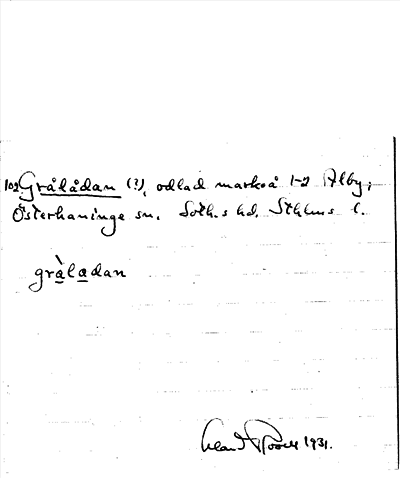 102 Grålådan (?), odlad mark å 1-2 Alby;
Österhaninge sn. Soth.s hd. Sthlms l.
gràladan
1931.